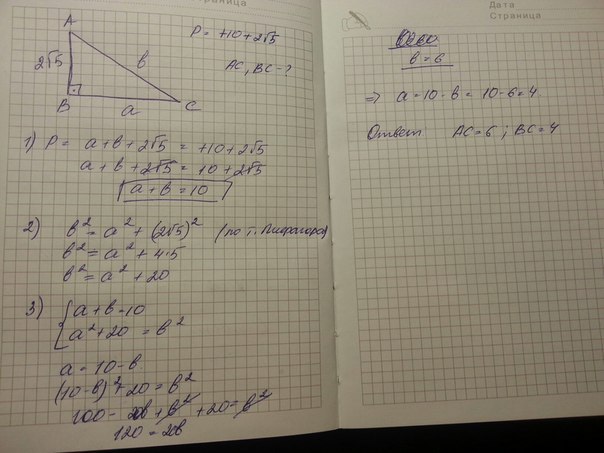 Страница
A
2√5
в
B
a
C
P = +10 + 2√5
AC, BC - ?
1) P = a + в + 2√5 = +10 + 2√5
a + в + 2√5 = 10 + 2√5
a + в = 10
2) в² = a² + (2√5)² (по т. Пифагора)
в² = a² + 4·5
в² = a² + 20
3) { a + в = 10
a² + 20 = в²
a = 10 - в
(10 - в)² + 20 = в²
100 - 20в + в² + 20 = в²
120 = 20в
Дата
Страница
в = 6
⇒ a = 10 - в = 10 - 6 = 4
Ответ AC = 6 ; BC = 4